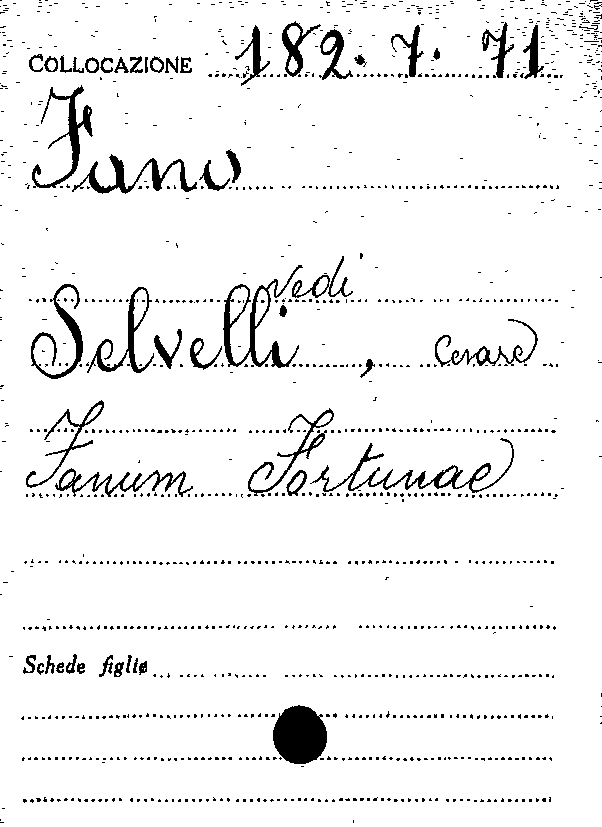 COLLOCAZIONE 182.7.71
Fano
vedi
Selvelli, Cesare
Fanum Fortunae
Schede figlie